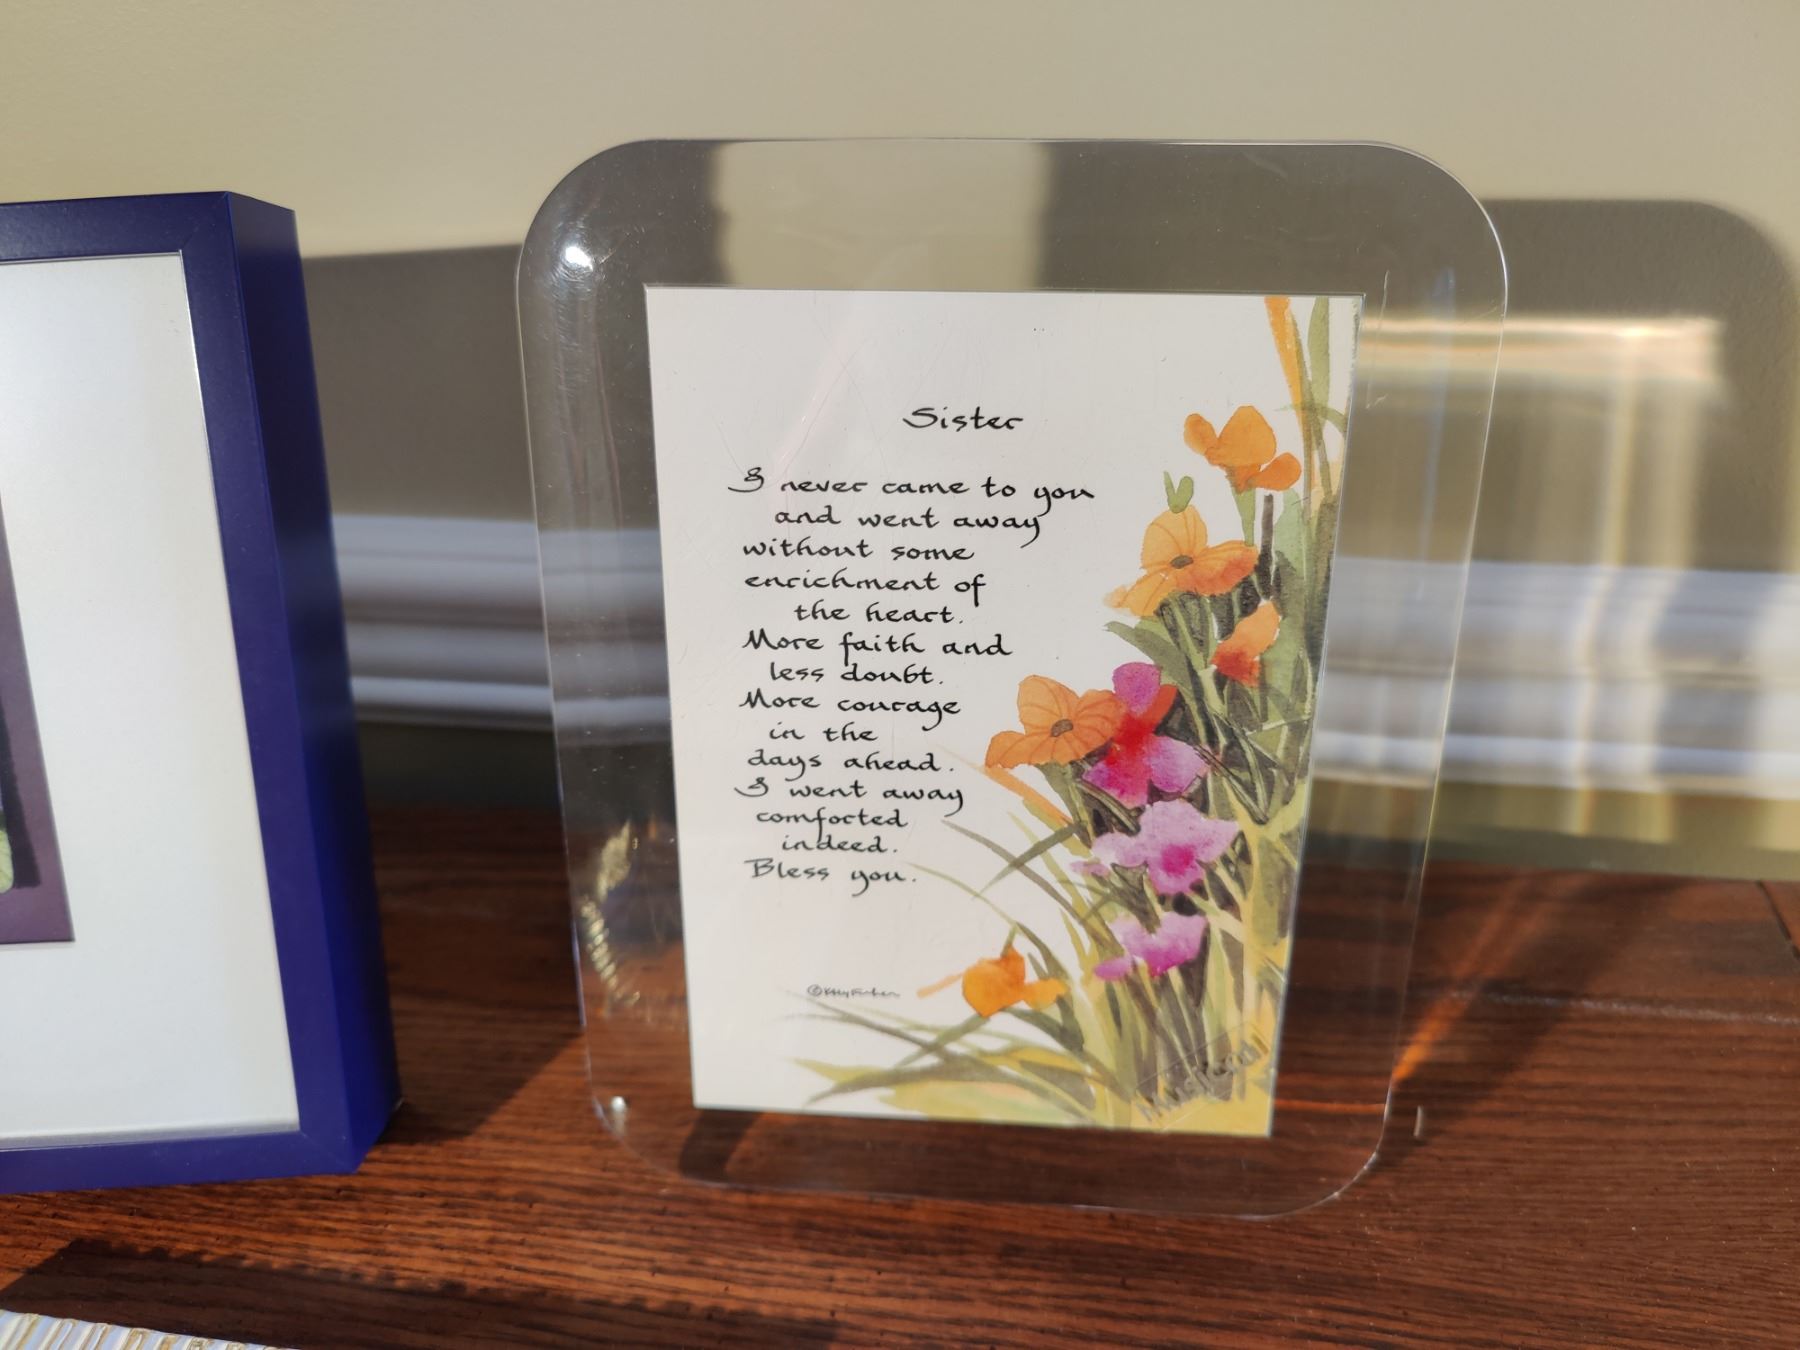 Sister
I never came to you
and went away
without some
enrichment of
the heart.
More faith and
less doubt.
More courage
in the
days ahead.
I went away
comforted
indeed.
Bless you.